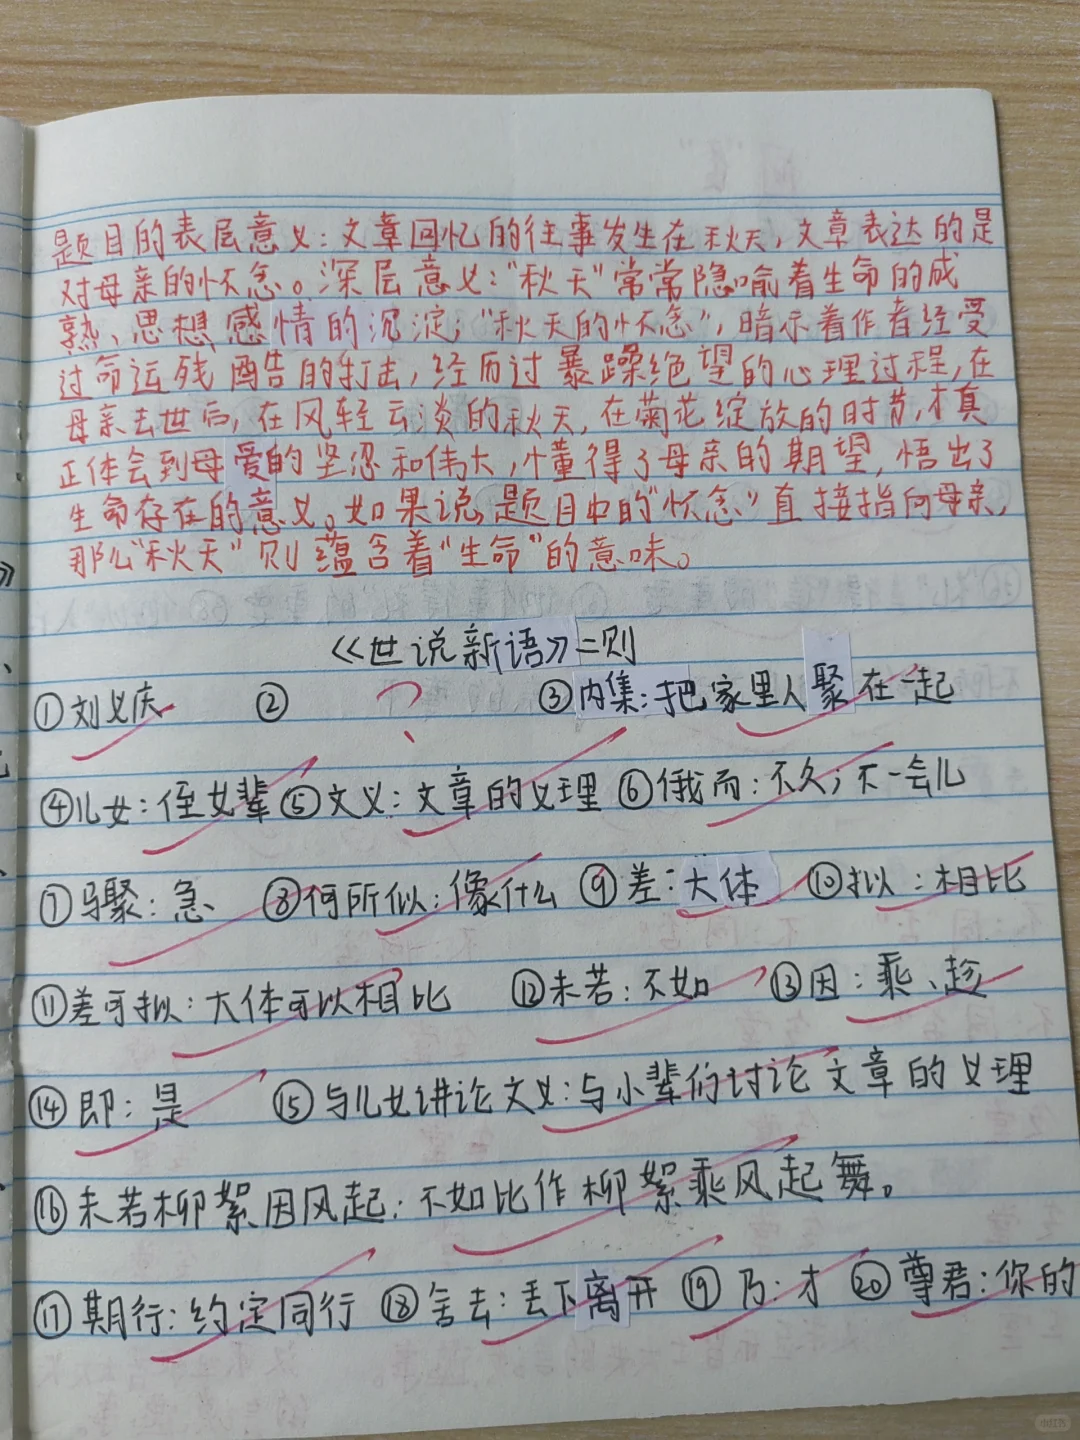 题目的表层意义：文章回忆的往事发生在秋天，文章表达的是
对母亲的怀念。深层意义：“秋天”常常隐喻着生命的成
熟、思想感情的沉淀；“秋天的怀念”，暗示着作者经受
过命运残酷的打击，经历过暴躁绝望的心理过程，在
母亲去世后，在风轻云淡的秋天，在菊花绽放的时节，才真
正体会到母爱的坚忍和伟大，懂得了母亲的期望，悟出了
生命存在的意义。如果说题目中的“怀念”直接指向母亲，
那么“秋天”则蕴含着“生命”的意味。
《世说新语》二则
①刘义庆 ② ？ ③内集：把家里人聚在一起
④儿女：侄女辈 ⑤文义：文章的义理 ⑥俄而：不久；不一会儿
⑦骤：急 ⑧何所似：像什么 ⑨差：大体 ⑩拟：相比
⑪差可拟：大体可以相比 ⑫未若：不如 ⑬因：乘、趁
⑭即：是 ⑮与儿女讲论文义：与小辈们讨论文章的义理
⑯未若柳絮因风起：不如比作柳絮乘风起舞。
⑰期行：约定同行 ⑱舍去：丢下离开 ⑲乃：才 ⑳尊君：你的